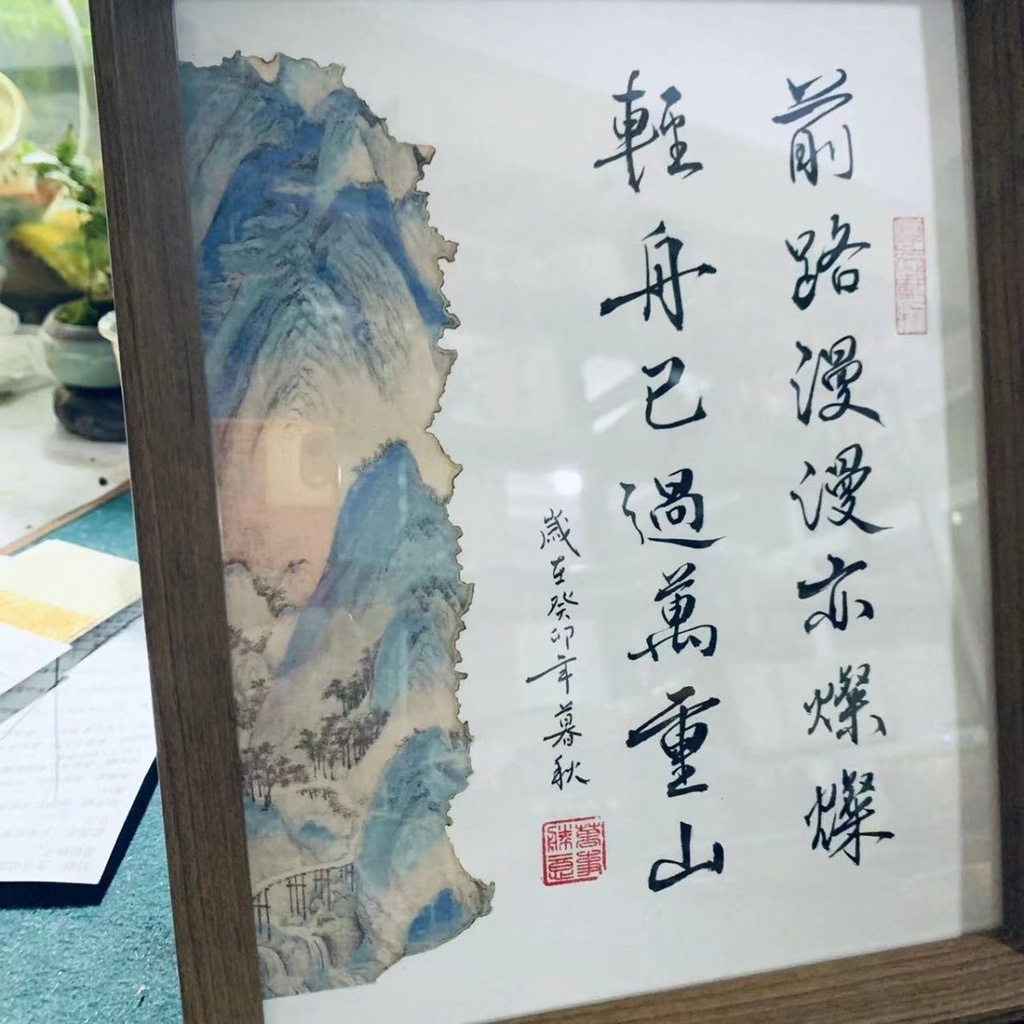 前路漫漫亦燦燦
輕舟已過萬重山
歲在癸卯年暮秋
萬事勝意